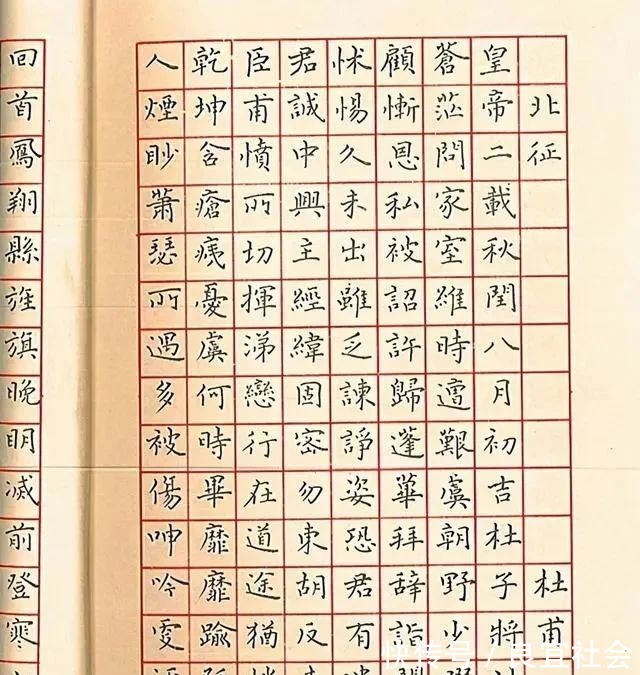 北征 杜甫
皇帝二載秋閏八月初吉杜子將
蒼茫問家室維時遭艱虞朝野少
顧慚恩私被詔許歸蓬蓽拜辭詣
怵惕久未出雖乏諫諍姿恐君有
君誠中興主經緯固密勿東胡反
臣甫憤所切揮涕戀行在道途猶
乾坤含瘡痍憂虞何時畢靡靡踰
人煙眇蕭瑟所遇多被傷呻吟更
回首鳳翔縣旌旗晚明滅前登寒
快传号 / 良宜社会